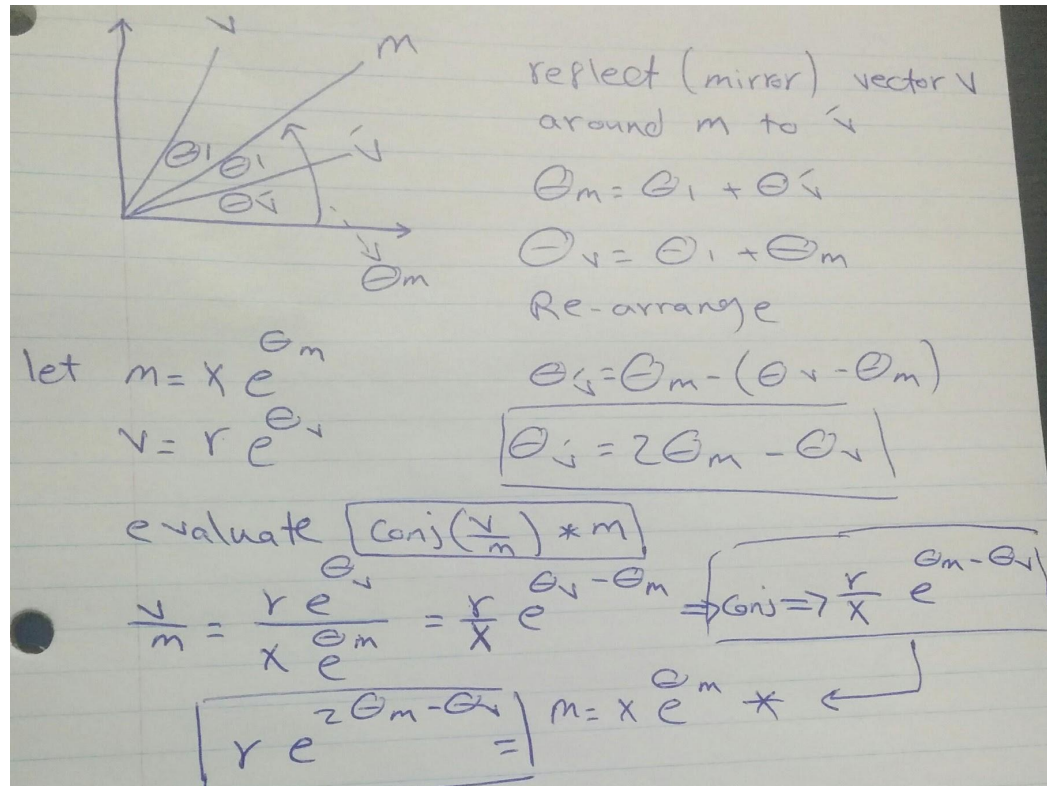 v
m
v́
θ1
θ1
θv́
θm
reflect (mirror) vector v
around m to v́
θm = θ1 + θv́
θv = θ1 + θm
Re-arrange
θv́ = θm - (θv - θm)
θv́ = 2θm - θv
let m = x e^θm
v = r e^θv
evaluate conj(v/m) * m
v/m = r e^θv / x e^θm = r/x e^θv-θm ⇒ conj ⇒ r/x e^θm-θv
r e^2θm-θv = m = x e^θm * ←